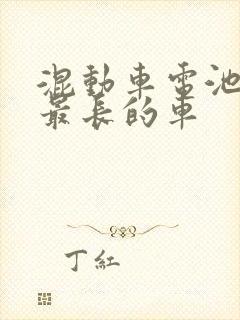 混動車電池
最長的車
丁紅